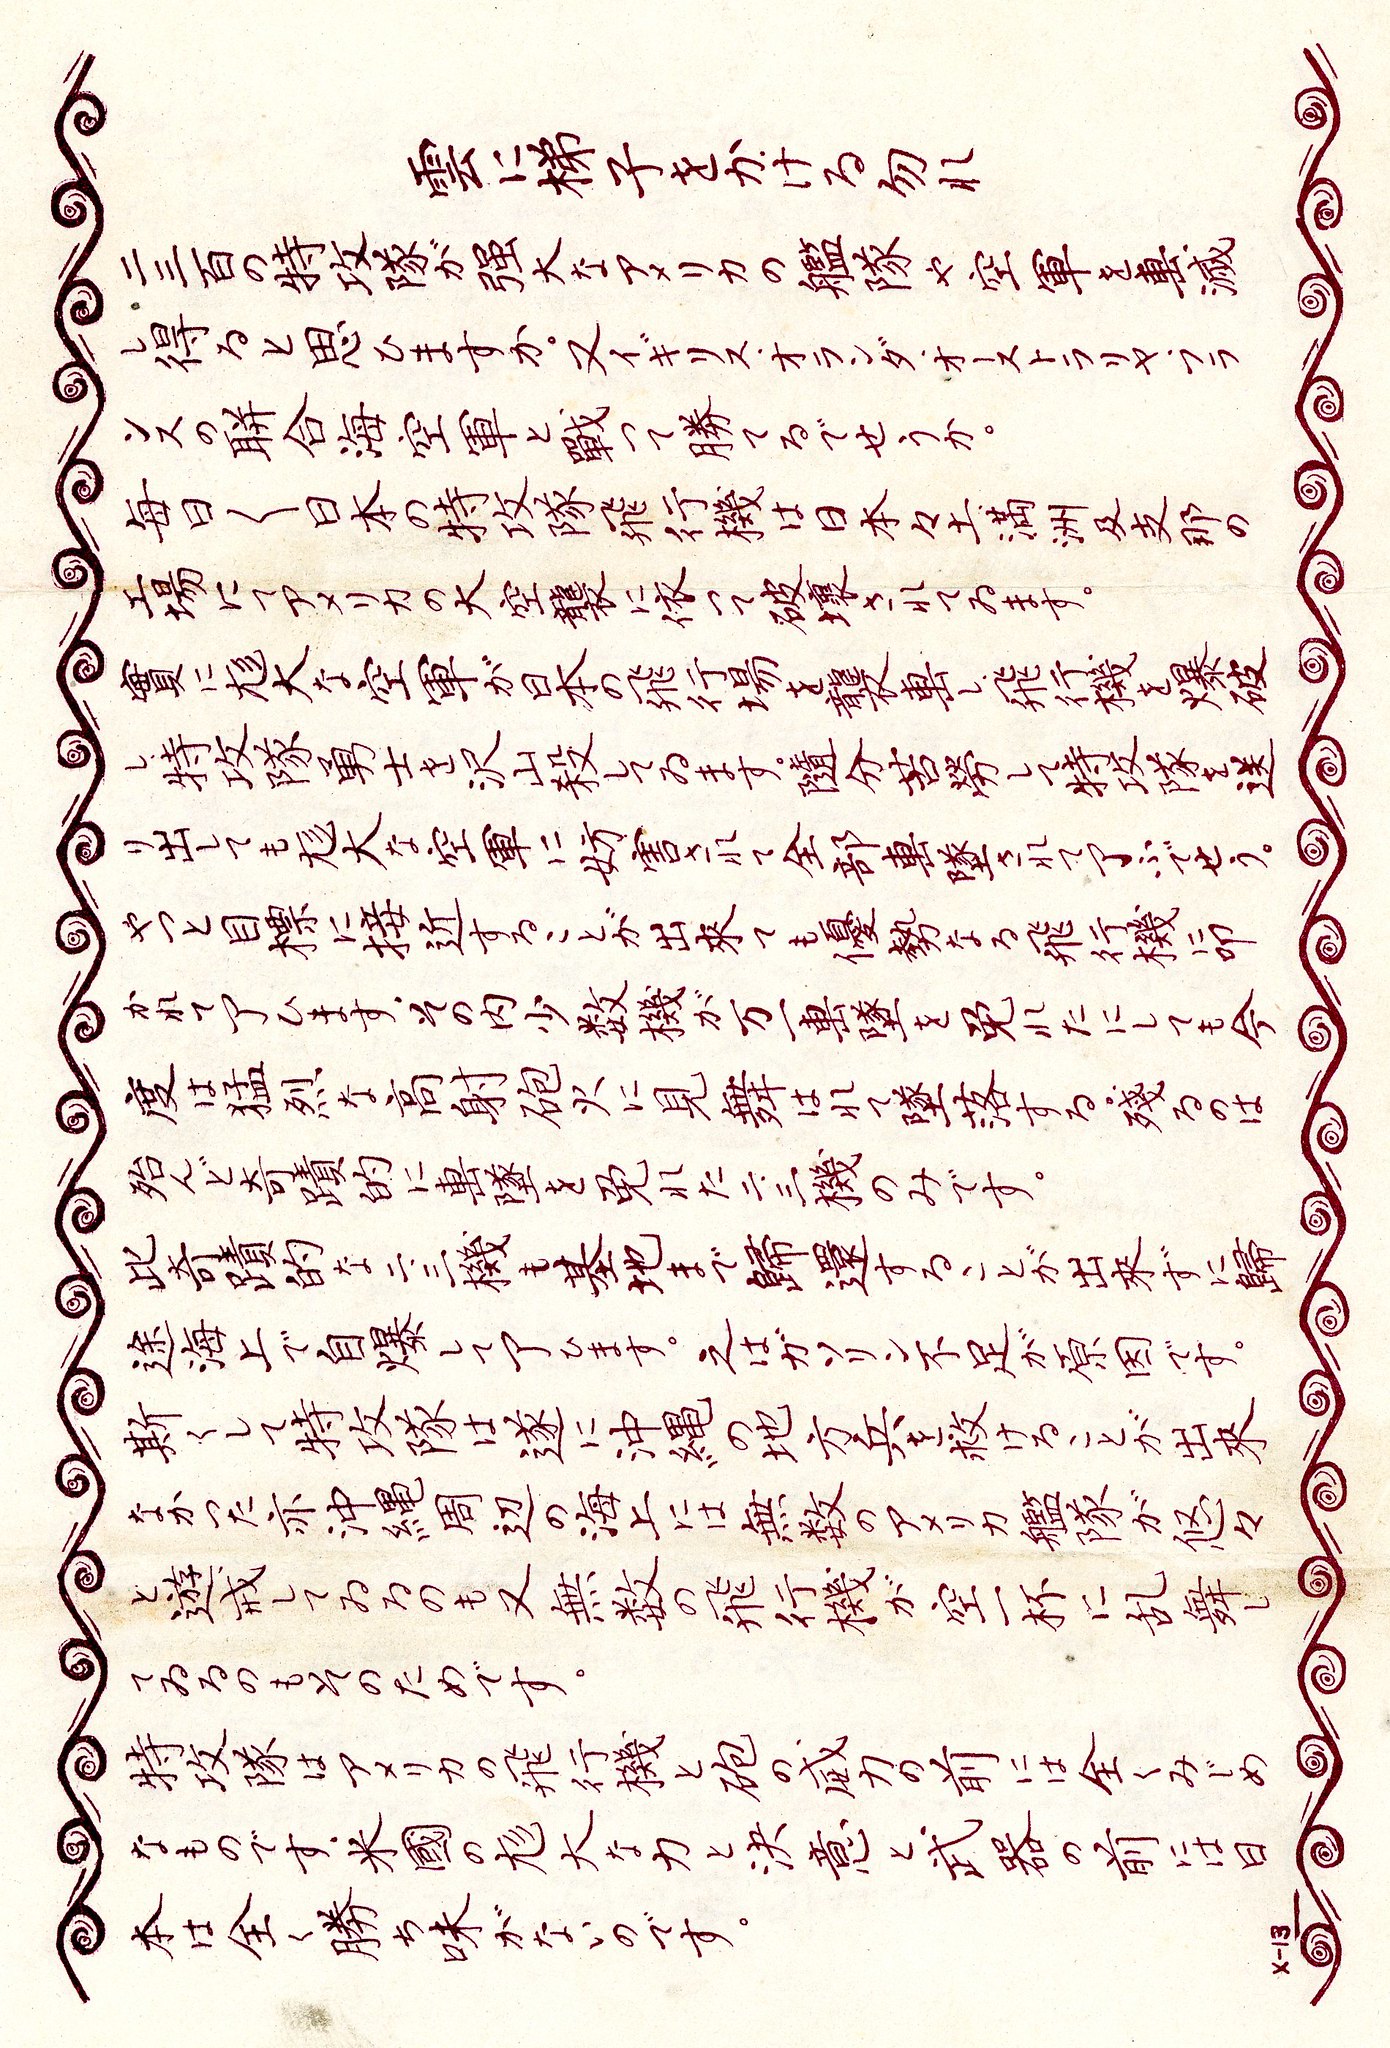 雲に梯子をかける勿れ
二三百の特攻隊が强大なアメリカの艦隊や空軍を擊滅
し得ると思ひますか。又イギリス・オランダ・オーストラリヤ・フラ
ンスの聯合海空軍と戰つて勝てるでせうか。
每日〱日本の特攻隊飛行機は日本々土滿洲及支那の
工場にてアメリカの大空襲に依つて破壞されてゐます。
實に尨大な空軍が日本の飛行場を襲擊し飛行機を爆破
し特攻隊勇士を沢山殺してゐます。隨分苦勞して特攻隊を送
り出しても尨大な空軍に妨害されて全部擊墜されて了ふでせう。
やつと目標に接近することが出來ても優勢なる飛行機に叩
かれて了ひます・その内少数機が万一擊墜を免れたにしても今
度は猛烈な高射砲火に見舞はれて墜落する・殘るのは
殆んど奇蹟的に擊墜を免れた二・三機のみです。
此奇蹟的な二・三機も基地まで歸還することが出來ずに歸
途海上で自爆して了ひます。之はガソリン不足が原因です。
斯くして特攻隊は遂に沖繩の地方兵を救けることが出來
なかつた亦沖繩周辺の海上には無数のアメリカ艦隊が悠々
と遊戒してゐるのも又無数の飛行機が空一杯に乱舞し
てゐるのもそのためです。
特攻隊はアメリカの飛行機と砲の威力の前には全くみじめ
なものです・米國の尨大な力と決意と武器の前には日
本は全く勝ち味がないのです。
X-13